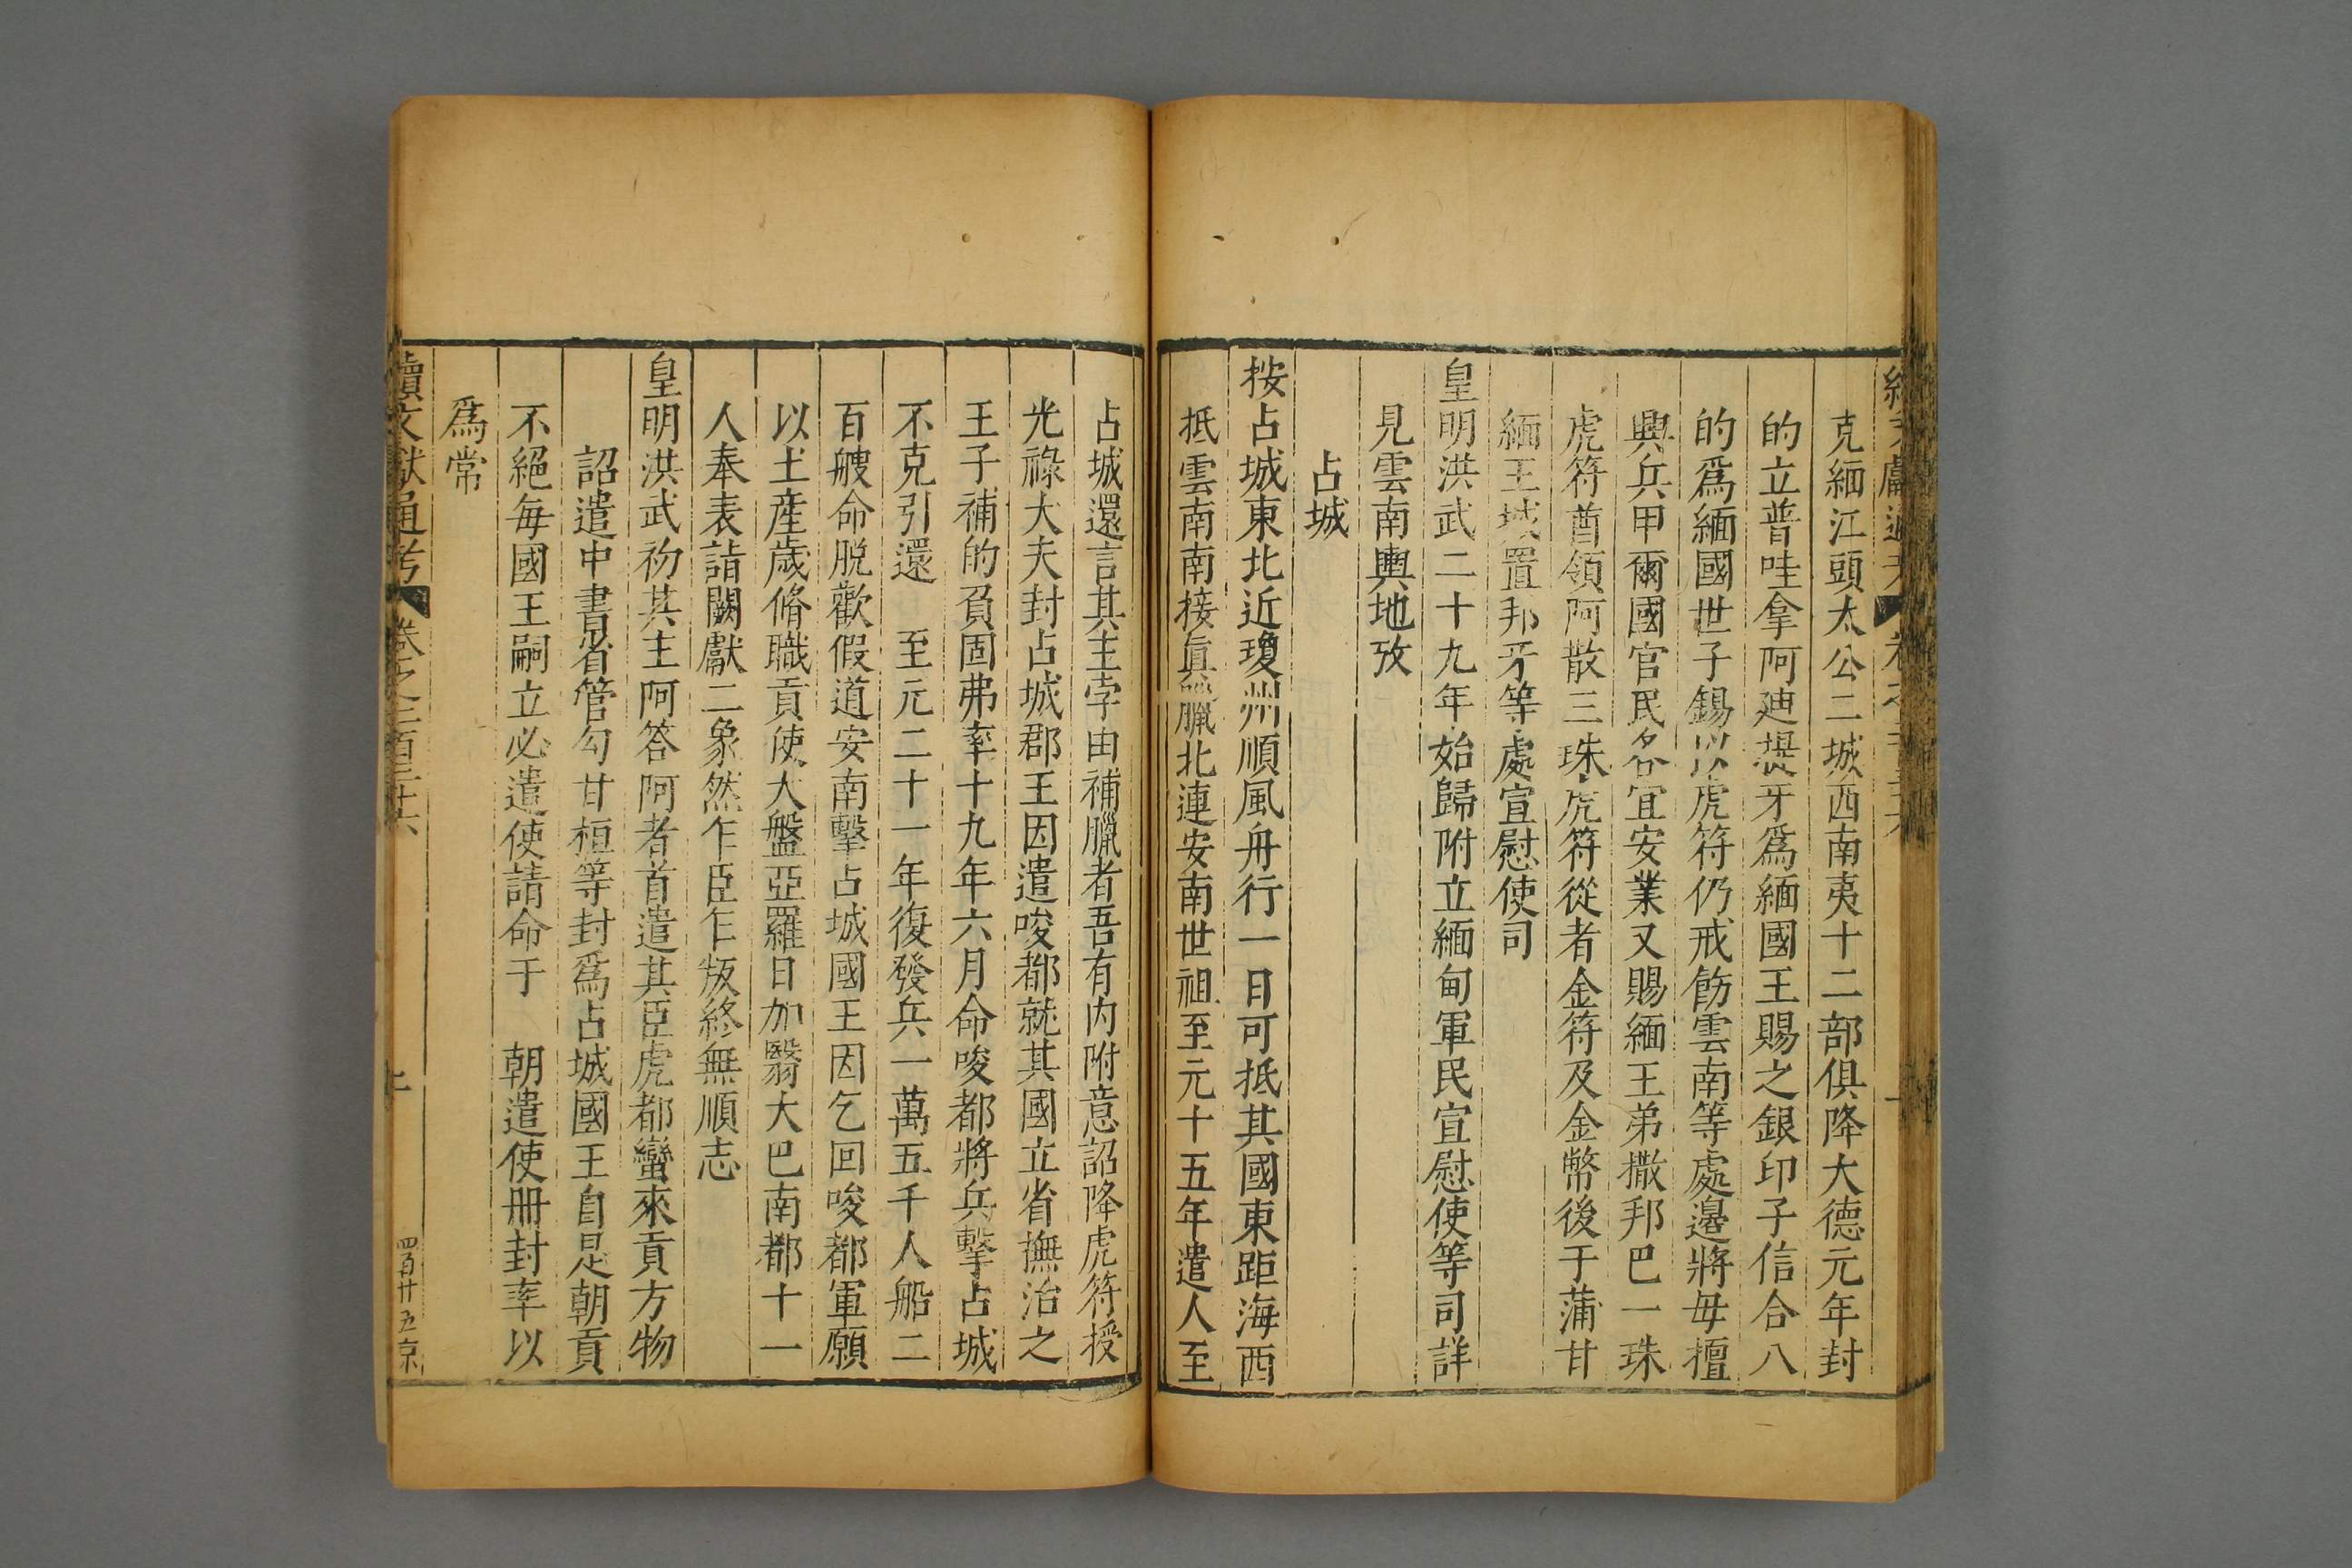 克緬江頭太公二城西南夷十二部俱降大德元年封
的立普哇拿阿廸提牙爲緬國王賜之銀印子信合八
的爲緬國世子錫以虎符仍戒飭雲南等處邊將毋擅
興兵甲爾國官民各宜安業又賜緬王弟撒邦巴一珠
虎符酋領阿散三珠虎符從者金符及金幣後于蒲甘
緬王城置邦牙等處宣慰使司
皇明洪武二十九年始歸附立緬甸軍民宣慰使等司詳
見雲南輿地攷
占城
按占城東北近瓊州順風舟行一日可抵其國東距海西
抵雲南南接眞臘北連安南世祖至元十五年遣人至
占城還言其主孛由補臘者吾有内附意詔降虎符授
光祿大夫封占城郡王因遣唆都就其國立省撫治之
王子補的負固弗率十九年六月命唆都將兵擊占城
不克引還 至元二十一年復發兵一萬五千人船二
百艘命脱歡假道安南擊占城國王因乞回唆都軍願
以土産歲脩職貢使大盤亞羅日加翳大巴南都十一
人奉表詣闕獻二象然乍臣乍叛終無順志
皇明洪武初其主阿答阿者首遣其臣虎都蠻來貢方物
詔遣中書省管勾甘桓等封爲占城國王自是朝貢
不絕毎國王嗣立必遣使請命于 朝遣使冊封率以
爲常
續文獻通考 卷之二百三十六
四百廿五京